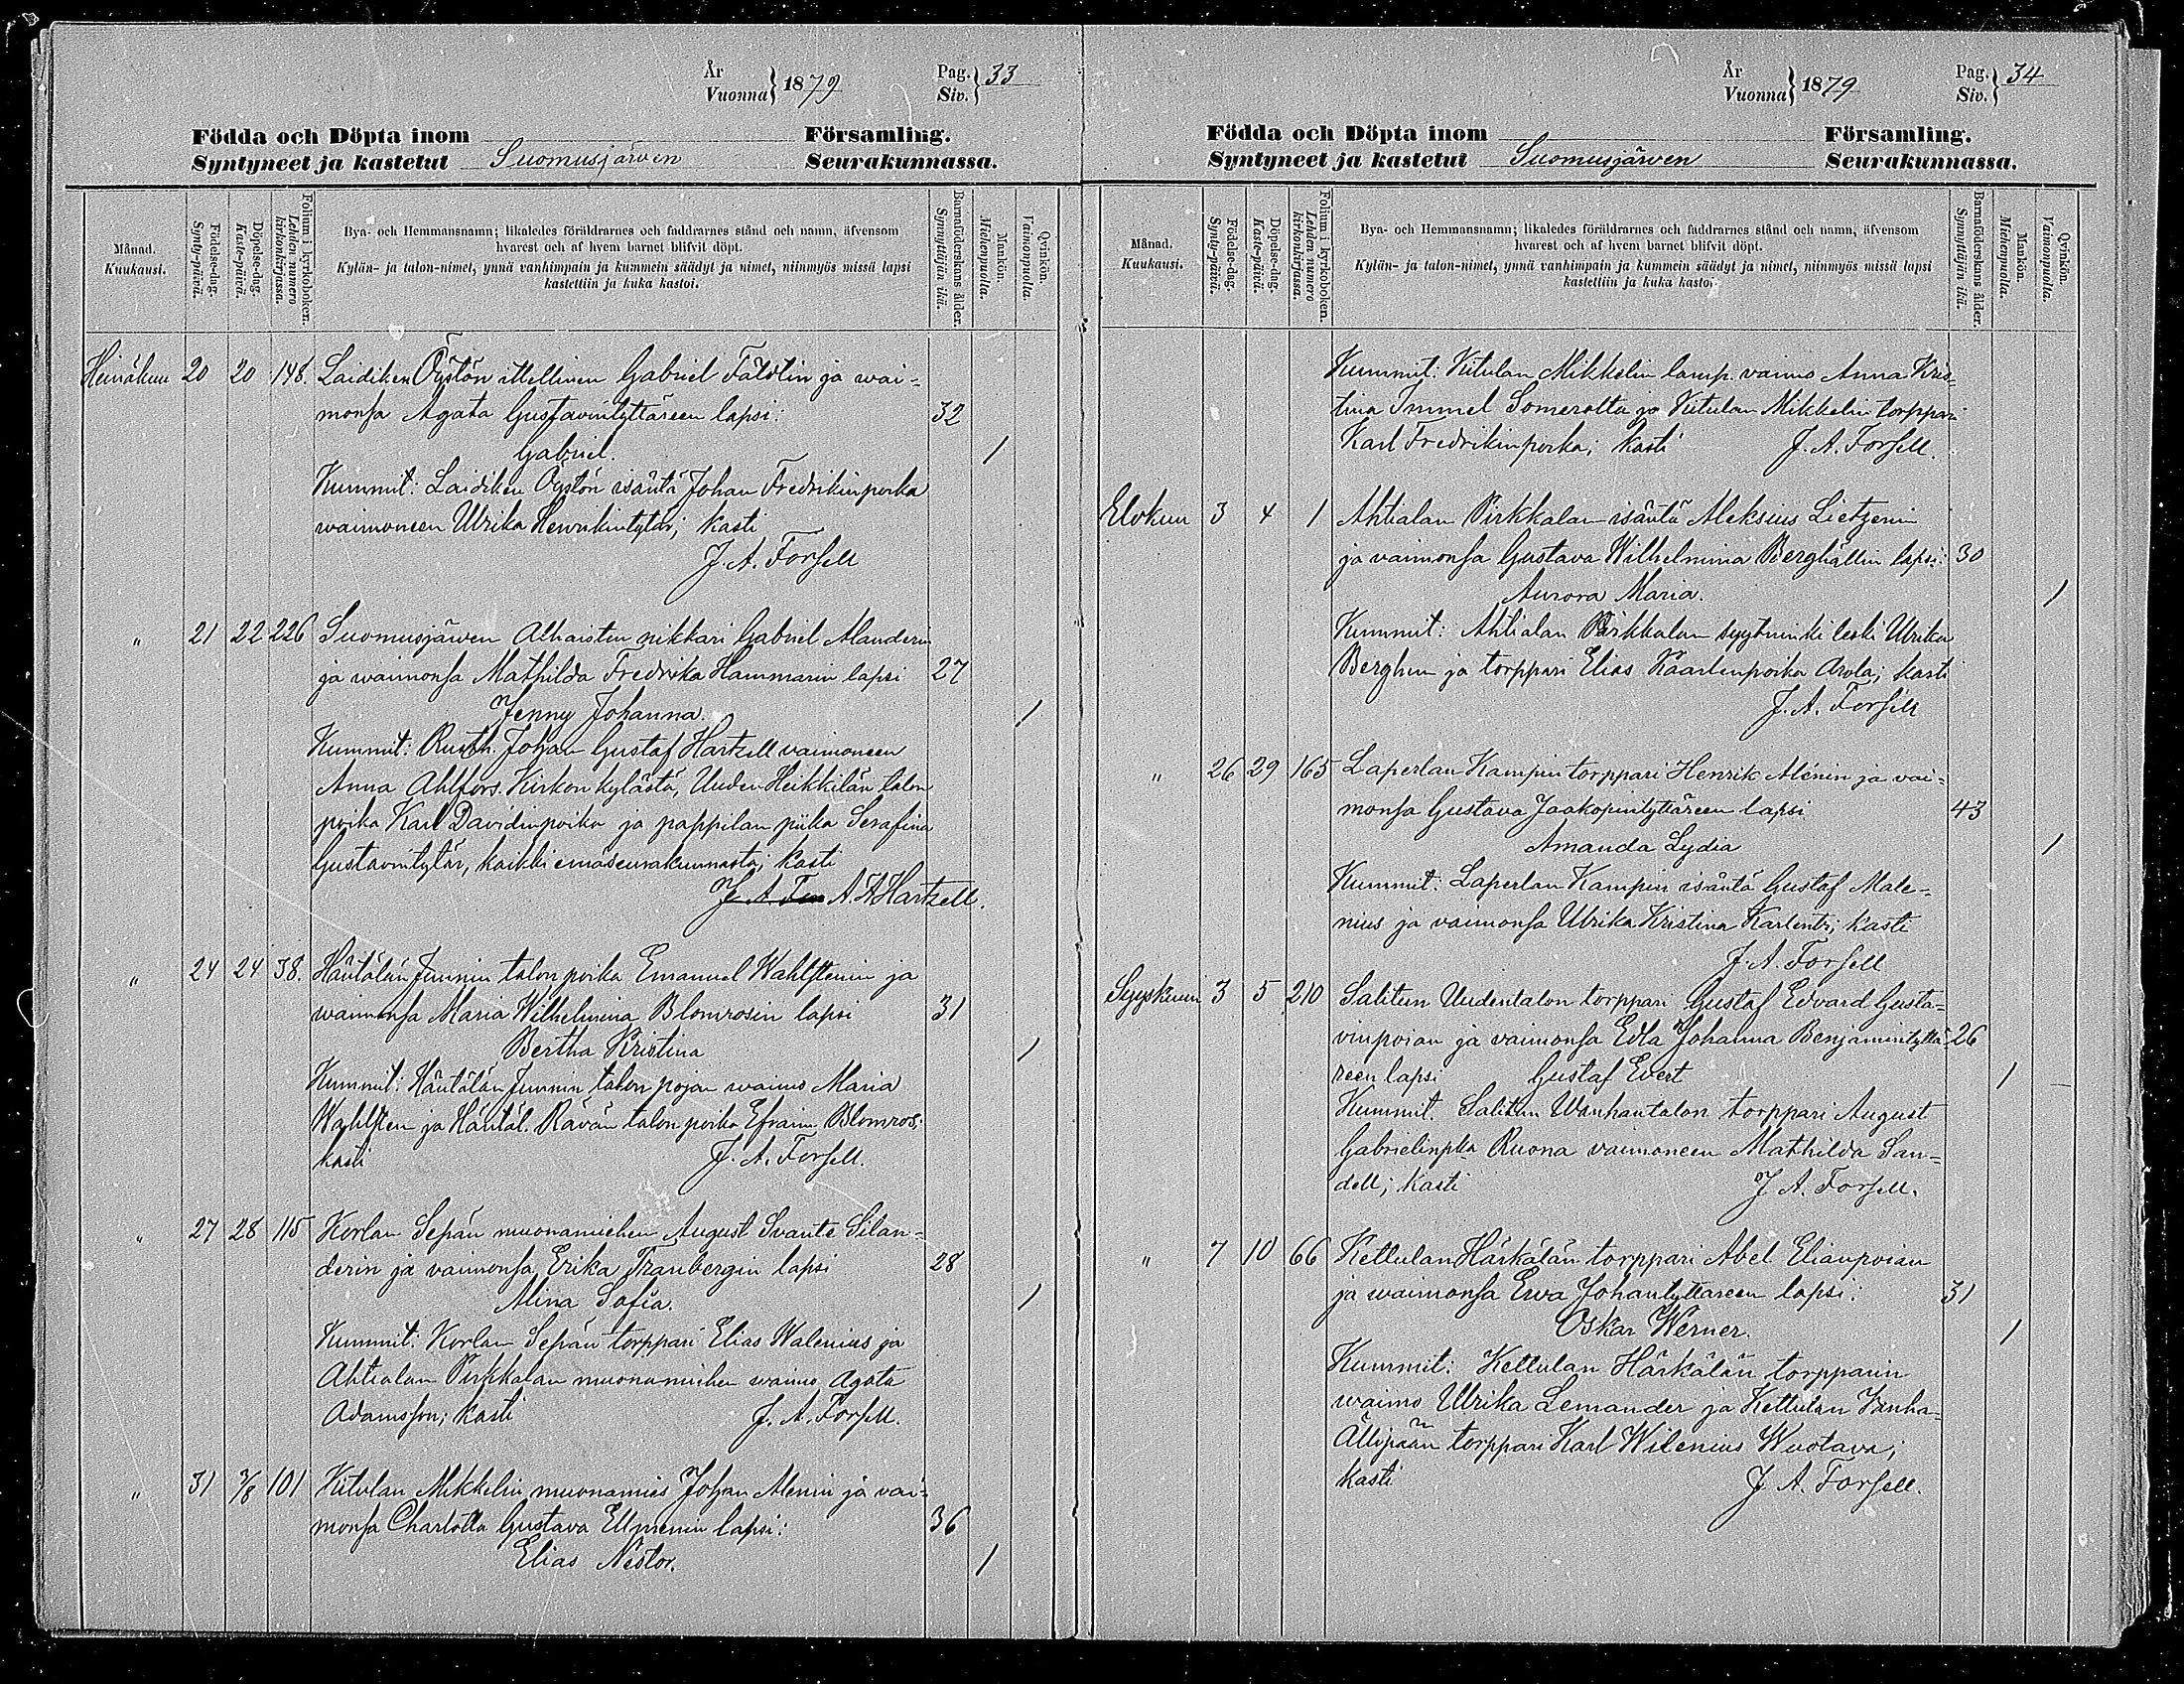 År
Vuonna } 1879
Pag.
Siv. } 33
Födda och Döpta inom Församling.
Syntyneet ja kastetut Suomusjärven Seurakunnassa.
Månad.
Kuukausi.
Födelse-dag.
Synty-päivä.
Döpelse-dag.
Kaste-päivä.
Folium i kyrkoboken.
Lehden numero kirkonkirjassa.
Bya- och Hemmansnamn; likaledes föräldrarnes och faddrarnes stånd och namn, äfvensom
hvarest och af hvem barnet blifvit döpt.
Kylän- ja talon-nimet, ynnä vanhimpain ja kummein säädyt ja nimet, niinmyös missä lapsi
kastettiin ja kuka kastoi.
Barnaföderskans ålder.
Synnyttäjän ikä.
Mankön.
Miehenpuolia.
Qvinkön.
Vaimonpuolia.
Heinäkuu 20 20 148. Laidiken Öystön itellinen Gabriel Fältin ja wai-
monsa Agata Gustavintyttäreen lapsi: 32
Gabriel. 1
Kummit: Laidiken Öystön isäntä Johan Fredrikinpoika
waimoneen Ulrika Henrikintytär; kasti
J. A. Forsell
" 21 22 226 Suomusjärwen Alhaisten nikkari Gabriel Alanderin
ja waimonsa Mathilda Fredrika Hammarin lapsi 27
Jenny Johanna. 1
Kummit: Rusth. Johan Gustaf Hartzell vaimoneen
Anna Ahlfors. Kirkon kylästä, Uuden Heikkilän talon
poika Karl Davidinpoika ja pappilan piika Serafina
Gustavintytär, kaikki emäseurakunnasta; kasti
J. A. For A. A Hartzell.
" 24 24 38. Häntälän Junnin talon poika Emanuel Wahlstenin ja
waimonsa Maria Wilhelmina Blomrosin lapsi 31
Bertha Kristina 1
Kummit: Häntälän Junnin talon pojan waimo Maria
Wahlsten ja Häntäl. Rävän talon poika Efraim Blomros.
kasti J. A. Forsell.
" 27 28 115 Korlan Sepän muonamiehen August Svante Silan-
derin ja vaimonsa Erika Tranbergin lapsi 28
Alina Sofia. 1
Kummit: Korlan Sepän torppari Elias Walenius ja
Ahtialan Pirkkalan muonamiehen waimo Agata
Adamsson; kasti J. A. Forsell.
" 31 3/8 101 Kitulan Mikkelin muonamies Johan Alenin ja vai-
monsa Charlotta Gustava Ellmenin lapsi: 36
Elias Nestor. 1
År
Vuonna } 1879
Pag.
Siv. } 34
Födda och Döpta inom Församling.
Syntyneet ja kastetut Suomusjärwen Seurakunnassa.
Månad.
Kuukausi.
Födelse-dag.
Synty-päivä.
Döpelse-dag.
Kaste-päivä.
Folium i kyrkoboken.
Lehden numero kirkonkirjassa.
Bya- och Hemmansnamn; likaledes föräldrarnes och faddrarnes stånd och namn, äfvensom
hvarest och af hvem barnet blifvit döpt.
Kylän- ja talon-nimet, ynnä vanhimpain ja kummein säädyt ja nimet, niinmyös missä lapsi
kastettiin ja kuka kastoi.
Barnaföderskans ålder.
Synnyttäjän ikä.
Mankön.
Miehenpuolia.
Qvinkön.
Vaimonpuolia.
Kummit: Kitulan Mikkelin lamp. vaimo Anna Kris-
tina Immel Somerolta ja Kitulan Mikkelin torppari
Karl Fredrikinpoika; kasti J. A. Forsell.
Elokuu 3 4 1 Ahtialan Pirkkalan isäntä Aleksius Lietzenin
ja vaimonsa Gustava Wilhelmina Berghällin lapsi: 30
Aurora Maria. 1
Kummit: Ahtialan Pirkkalan syytninki leski Ulrika
Berghen ja torppari Elias Kaarlenpoika Arola; kasti
J. A. Forsell
" 26 29 165 Laperlan Kampin torppari Henrik Alénin ja vai-
monsa Gustava Jaakopintyttäreen lapsi 43
Amanda Lydia 1
Kummit: Laperlan Kampin isäntä Gustaf Male-
nius ja vaimonsa Ulrika Kristina Karlentr; kasti
J. A. Forsell
Syyskuun 3 5 210 Salitun Uudentalon torppari Gustaf Edvard Gusta-
vinpoian ja vaimonsa Edla Johanna Benjamintyttä- 26
reen lapsi Gustaf Evert 1
Kummit. Salitun Wanhantalon torppari August
Gabrielinpka Ruona vaimoneen Mathilda San-
dell; kasti J. A. Forsell.
" 7 10 66 Kettulan Härkälän torppari Abel Elianpoian
ja waimonsa Ewa Johantyttäreen lapsi: 31
Oskar Werner. 1
Kummit: Kettulan Härkälän torpparin
waimo Ulrika Lemander ja Kettulan Vanha-
Ällipään torppari Karl Wilenius Wuotava;
kasti J. A. Forsell.